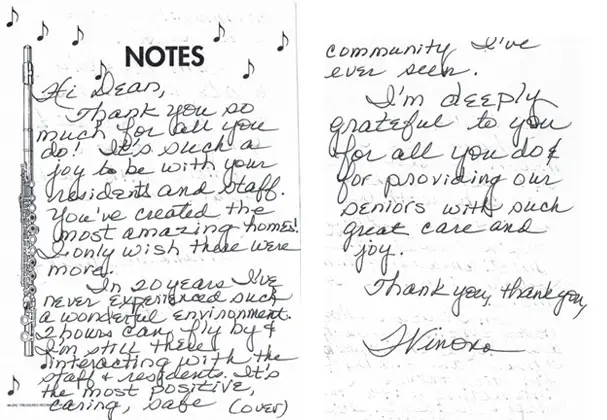 NOTES
Hi Dean,
Thank you so
much for all you
do! It's such a
joy to be with your
residents and staff.
You've created the
most amazing homes!
I only wish there were
more.
In 20 years I've
never experienced such
a wonderful environment.
2 hours can fly by &
I'm still there
interacting with the
staff & residents. It's
the most positive,
caring, safe (over)
community I've
ever seen.
I'm deeply
grateful to you
for all you do &
for providing our
seniors with such
great care and
joy.
Thank you, thank you,